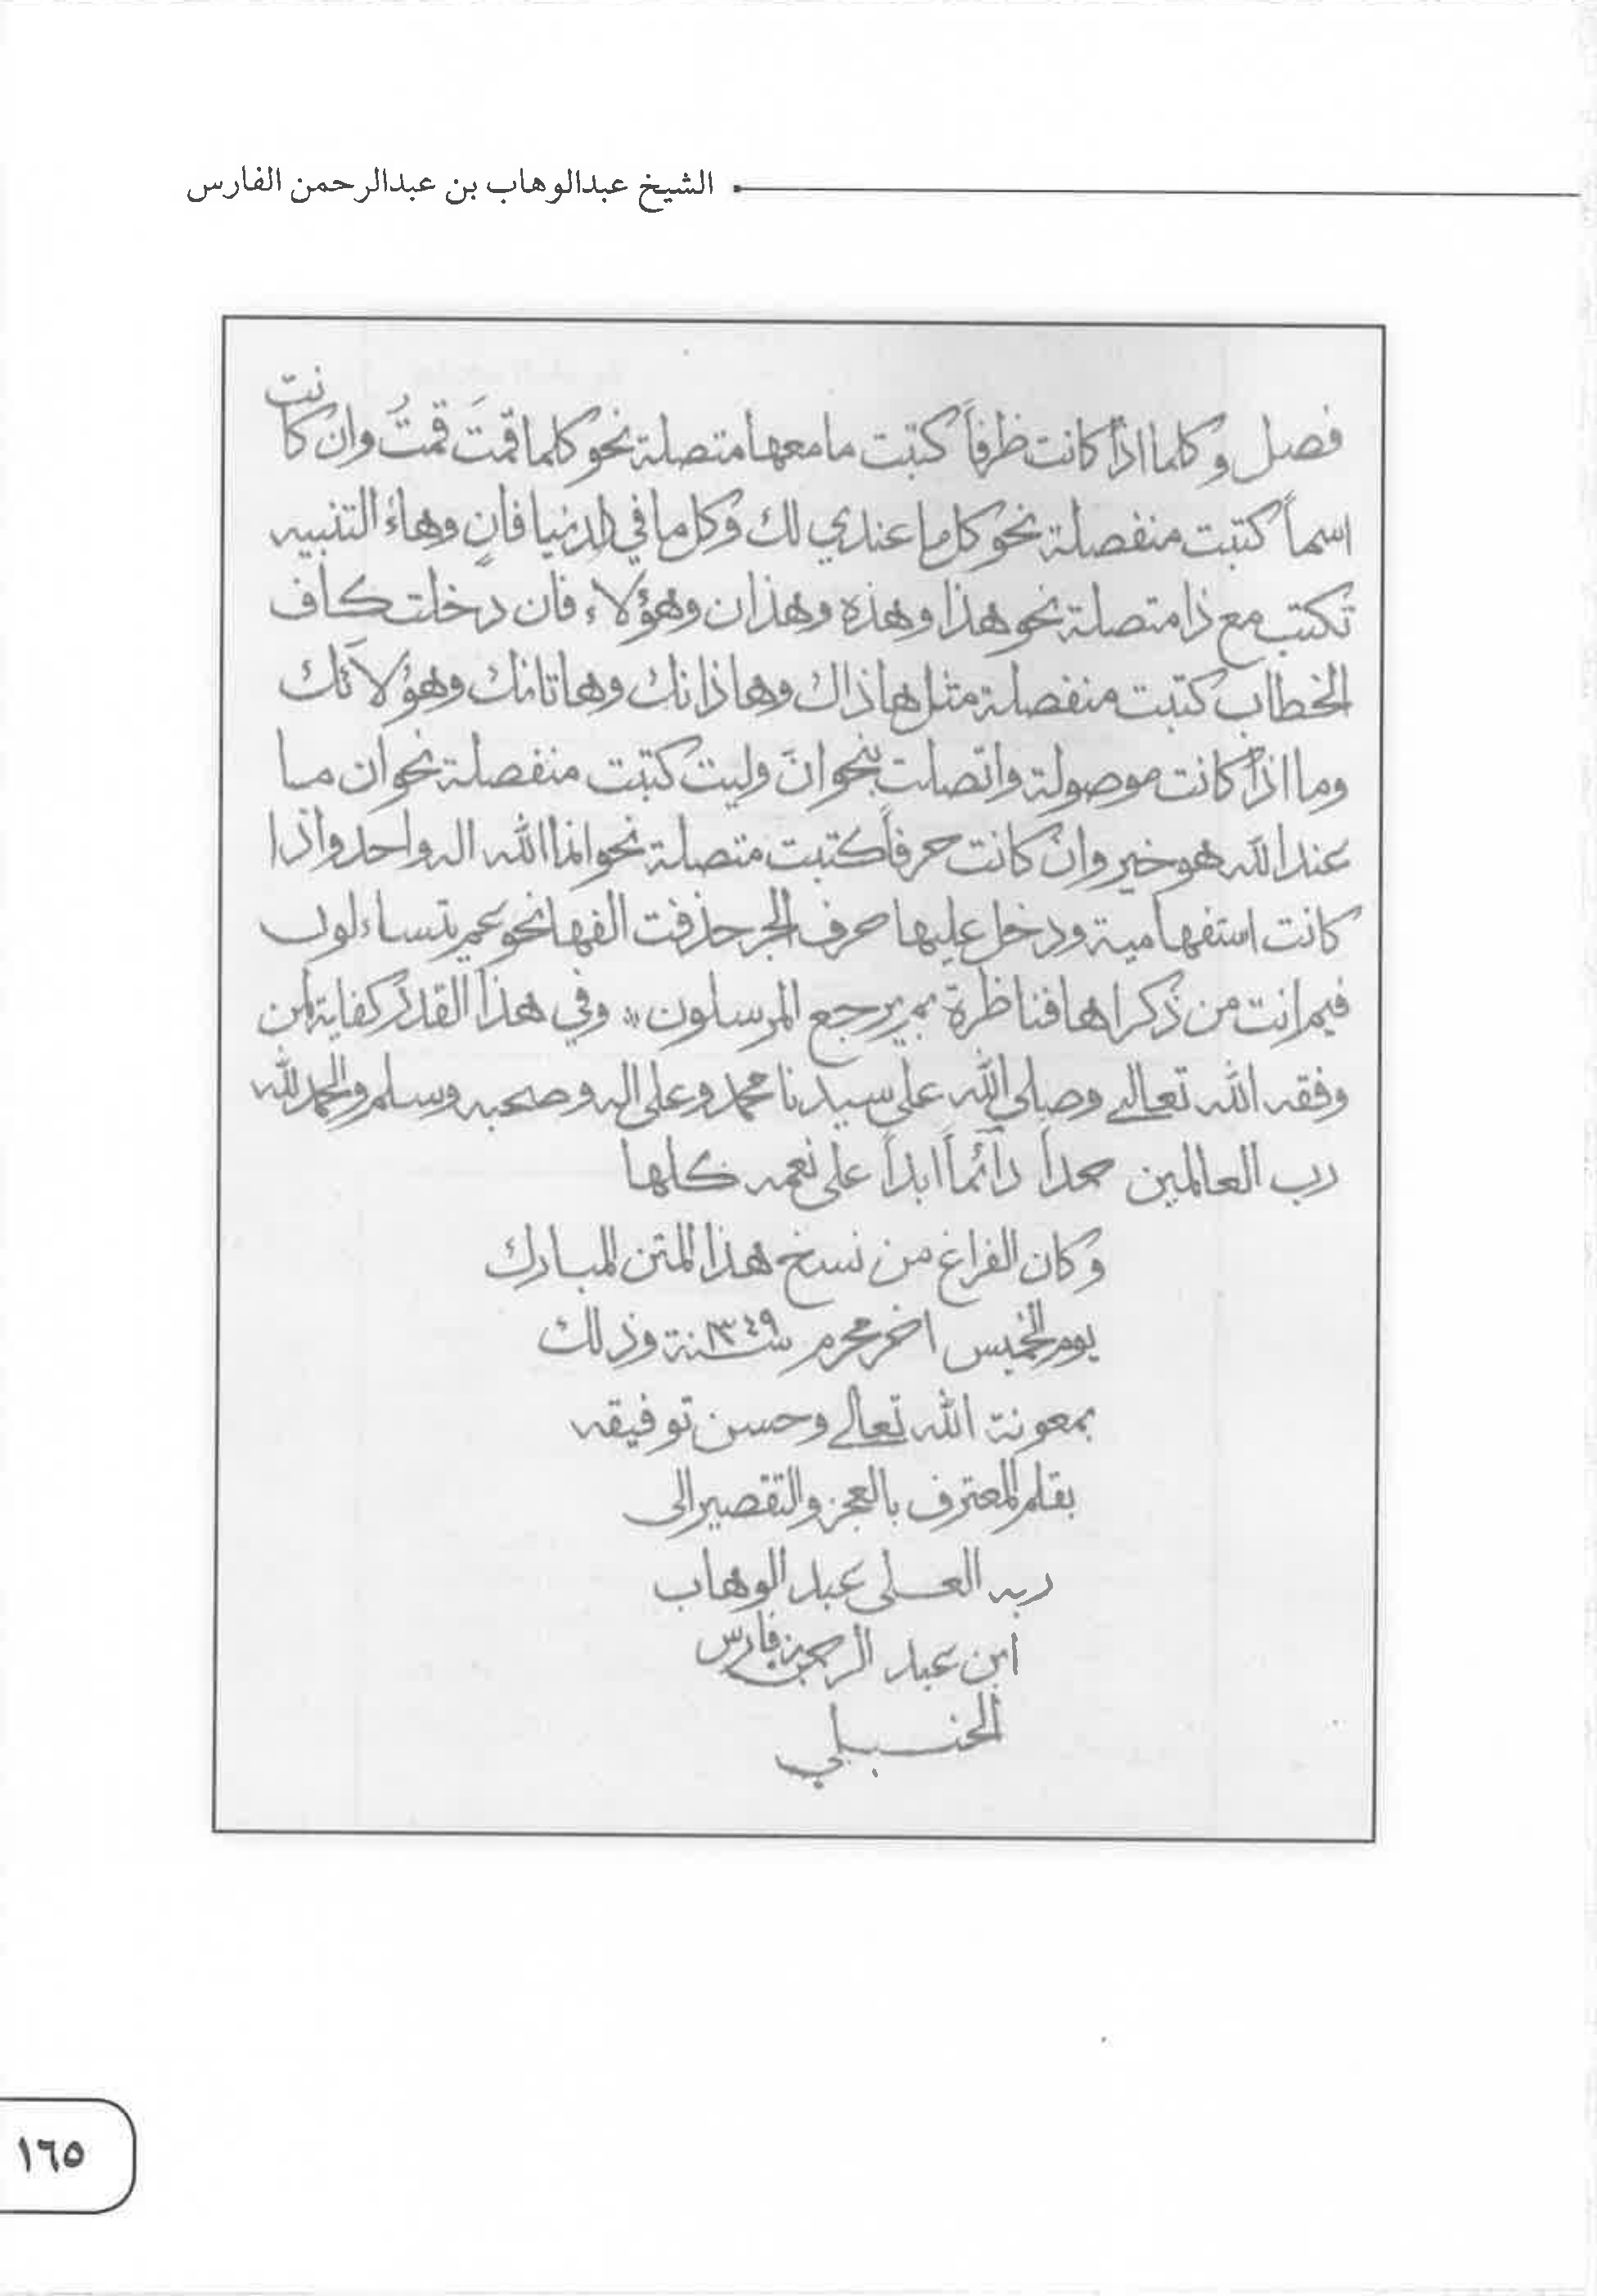 الشيخ عبدالوهاب بن عبدالرحمن الفارس
فصل وكلما اذا كانت ظرفاً كتبت ما معها متصلة نحو كلما قمتَ قمتُ وان كانت
اسماً كتبت منفصلة نحو كل ما عندي لك وكل ما في الدنيا فانٍ وهاء التنبيه
تكتب مع ذا متصلة نحو هذا وهذه وهذان وهؤلاء فان دخلت كاف
الخطاب كتبت منفصلة مثل ها ذاك وها ذانك وها تانك وهؤلائك
وما اذا كانت موصولة واتصلت بنحو انَّ وليت كتبت منفصلة نحو ان ما
عند الله هو خير وان كانت حرفاً كتبت متصلة نحو انما الله اله واحد واذا
كانت استفهامية ودخل عليها حرف الجر حذفت الفها نحو عم يتساءلون
فيم انت من ذكراها فناظرة بم يرجع المرسلون وفي هذا القدر كفاية لمن
وفقه الله تعالى وصلى الله على سيدنا محمد وعلى اله وصحبه وسلم والحمد لله
رب العالمين حمداً دآئماً ابداً على نعمه كلها
وكان الفراغ من نسخ هذا المتن المبارك
يوم الخميس اخر محرم سنة ١٣٤٩ وذلك
بمعونة الله تعالى وحسن توفيقه
بقلم المعترف بالعجز والتقصير الى
ربه العلى عبد الوهاب
ابن عبد الرحمن فارس
الحنبلي
١٦٥